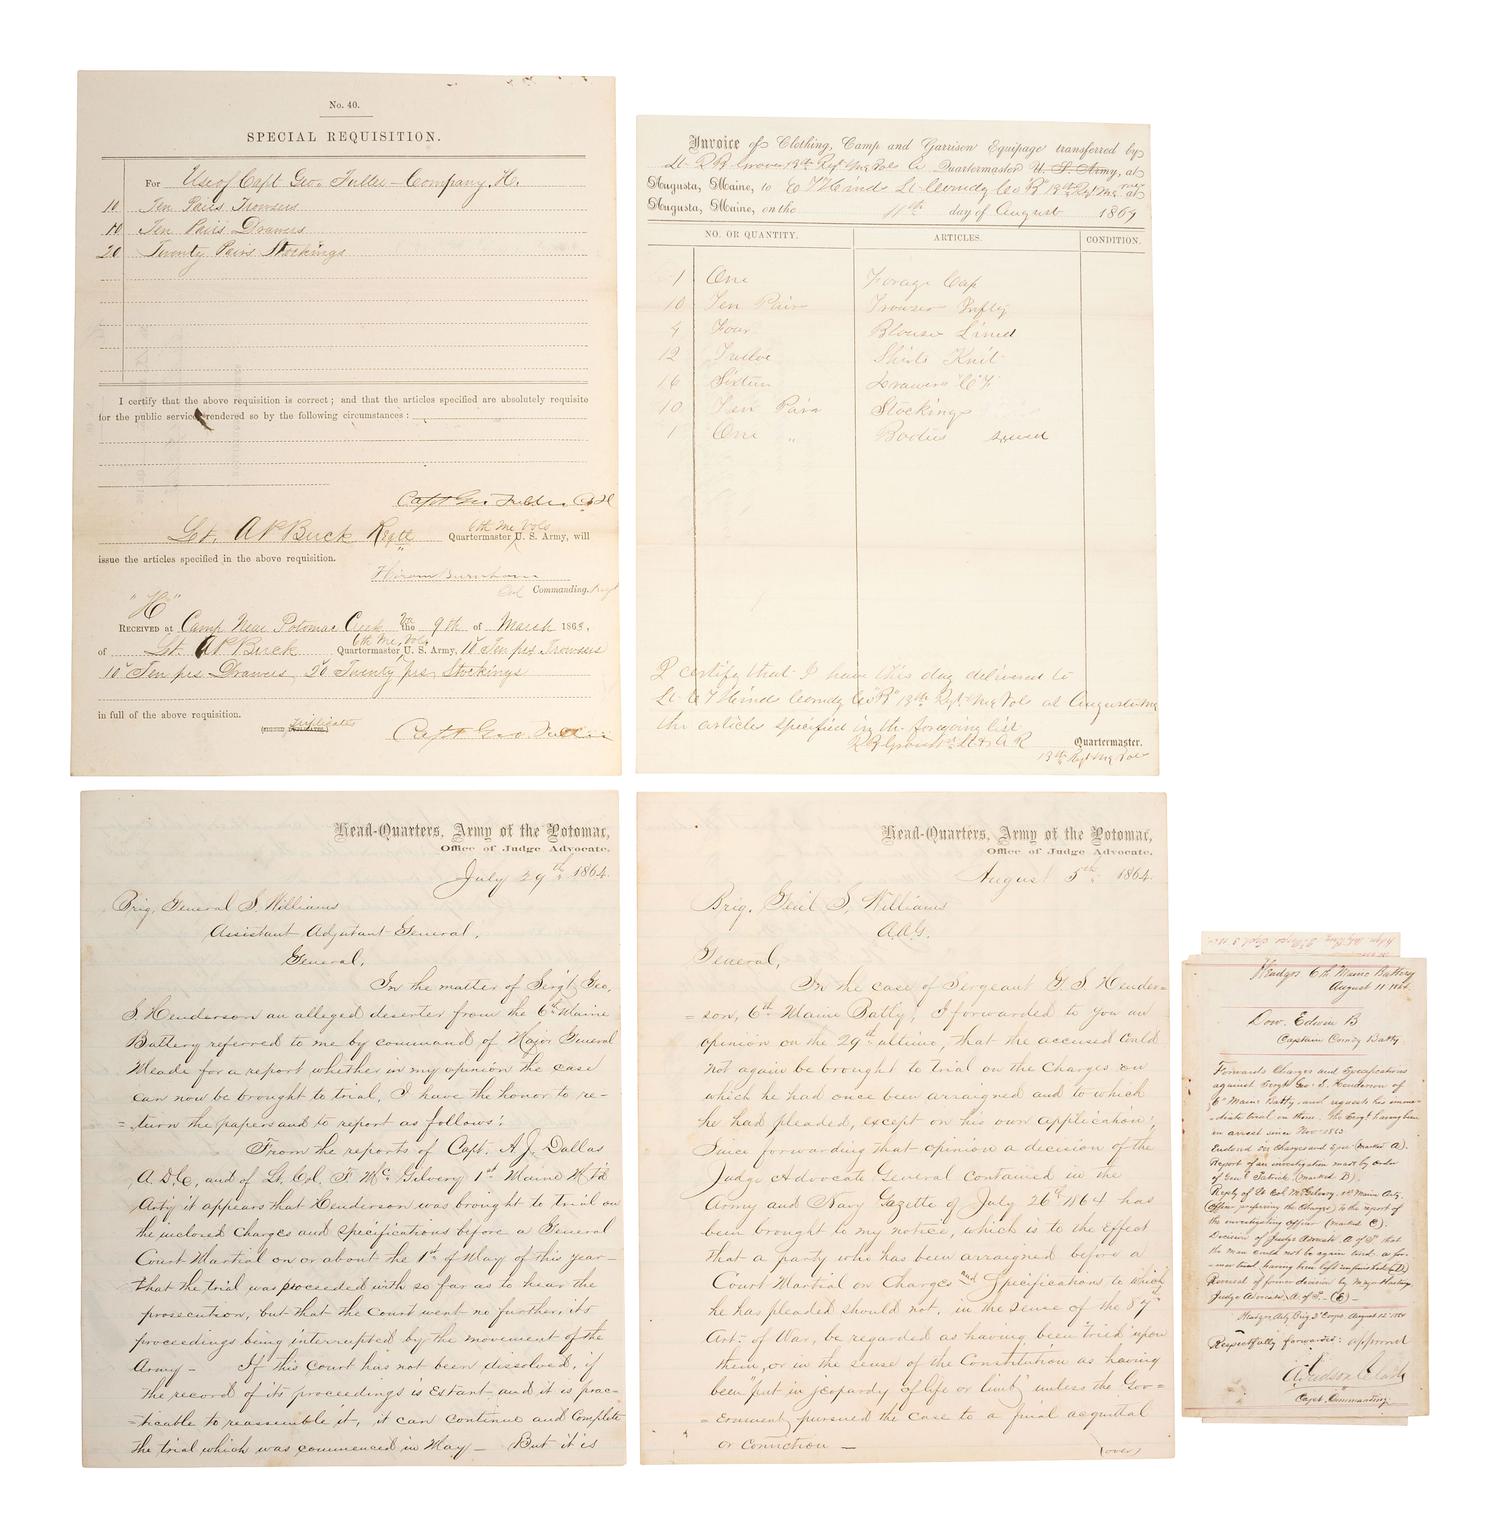 No. 40.
SPECIAL REQUISITION.
For Use of Capt Geo. Fuller - Company. H.
10 Ten Pairs Trowsers
10 Ten Pairs Drawers
20 Twenty Pairs Stockings
I certify that the above requisition is correct; and that the articles specified are absolutely requisite
for the public service, rendered so by the following circumstances:
Capt Geo. Fuller Co H
Lt. A P Buck Regtl 6th Me Vols Quartermaster U. S. Army, will
issue the articles specified in the above requisition.
Hiram Burnham
Col Commanding. Regt
"H"
Received at Camp Near Potomac Creek Va the 9th of March 1863,
of Lt. A P Buck 6th Me. Vols Quartermaster U. S. Army, 10 Ten prs Trowsers
10 Ten prs Drawers, 20 Twenty prs Stockings
in full of the above requisition.
(SIGNED DUPLICATES.) Triplicates
Capt Geo. Fuller
Invoice of Clothing, Camp and Garrison Equipage transferred by
Lt. Grover 13th Regt Me Vols Quartermaster U. S. Army, at
Augusta, Maine, to C T Hinds Lt. Comdg Co "B" 13th Regt Me Vols at
Augusta, Maine, on the 11th day of August 1864
NO. OR QUANTITY. ARTICLES. CONDITION.
1 One Forage Cap
10 Ten Pair Trowser Infty
4 Four Blouse Lined
12 Twelve Shirts Knit
16 Sixteen Drawers "C F"
10 Ten Pair Stockings
1 One " Bootees sewed
I certify that I have this day delivered to
Lt. C T Hinds Comdg Co "B" 13th Regt Me Vols at Augusta Me
the articles specified in the foregoing list
Quartermaster.
13th Regt Me Vols
Head-Quarters, Army of the Potomac,
Office of Judge Advocate.
July 29th 1864.
Brig. General S. Williams
Assistant Adjutant General.
General,
In the matter of Sergt Geo.
S. Henderson an alleged deserter from the 6th Maine
Battery referred to me by command of Major General
Meade for a report whether in my opinion the case
can now be brought to trial, I have the honor to re-
=turn the papers and to report as follows:
From the reports of Capt. A. J. Dallas
A.D.C, and of Lt. Col. F. McGilvery 1st Maine Mt'd
Arty it appears that Henderson was brought to trial on
the inclosed Charges and Specifications before a General
Court Martial on or about the 1st of May of this year -
that the trial was proceeded with so far as to hear the
prosecution, but that the Court went no further, its
proceedings being interrupted by the movement of the
Army - If this Court has not been dissolved, if
the record of its proceedings is Extant and it is prac-
=ticable to reassemble it, it can continue and Complete
the trial which was commenced in May - But it is
Head-Quarters, Army of the Potomac,
Office of Judge Advocate.
August 5th 1864.
Brig. Genl S. Williams
A.A.G.
General,
In the case of Sergeant G. S. Hender=
=son, 6th Maine Batty, I forwarded to you an
opinion on the 29th ultimo, that the accused Could
not again be brought to trial on the Charges on
which he had once been arraigned and to which
he had pleaded, except on his own application;
Since forwarding that opinion a decision of the
Judge Advocate General contained in the
Army and Navy Gazette of July 26th 1864 has
been brought to my notice, which is to the Effect
that a party who has been arraigned before a
Court Martial on Charges and Specifications to which
he has pleaded should not, in the sense of the 87th
Art: of War, be regarded as having been "tried" upon
them, or in the sense of the Constitution as having
been "put in jeopardy of life or limb" unless the Gov=
=ernment pursued the case to a final acquittal
or Conviction -
(over)
Headqrs 6th Maine Battery
August 11 1864.
Dow. Edwin B
Captain Comdg Batty.
Forwards Charges and Specifications
against Sergt Geo. S. Henderson of
6th Maine Batty. and requests his imme-
-diate trial on them. The Sergt having been
in arrest since Nov. 1863
Enclosed in Charges and Spec (marked A).
Report of an investigation made by order
of Genl Patrick. (marked B).
Reply of Lt Col McGilvery. 1st Maine Arty.
(Officer preferring the Charges) to the report of
the investigating Officer (marked C).
Decision of Judge Advocate. A of P. that
the man could not be again tried. a for-
-mer trial, having been left unfinished (D)
Reversal of former decision by Major Hastings
Judge Advocate A. of P. - (E) -
Headqrs Arty Brig 3d Corps. August 12 1864
Respectfully forwarded: approved
A Judson Clark
Capt. Commanding